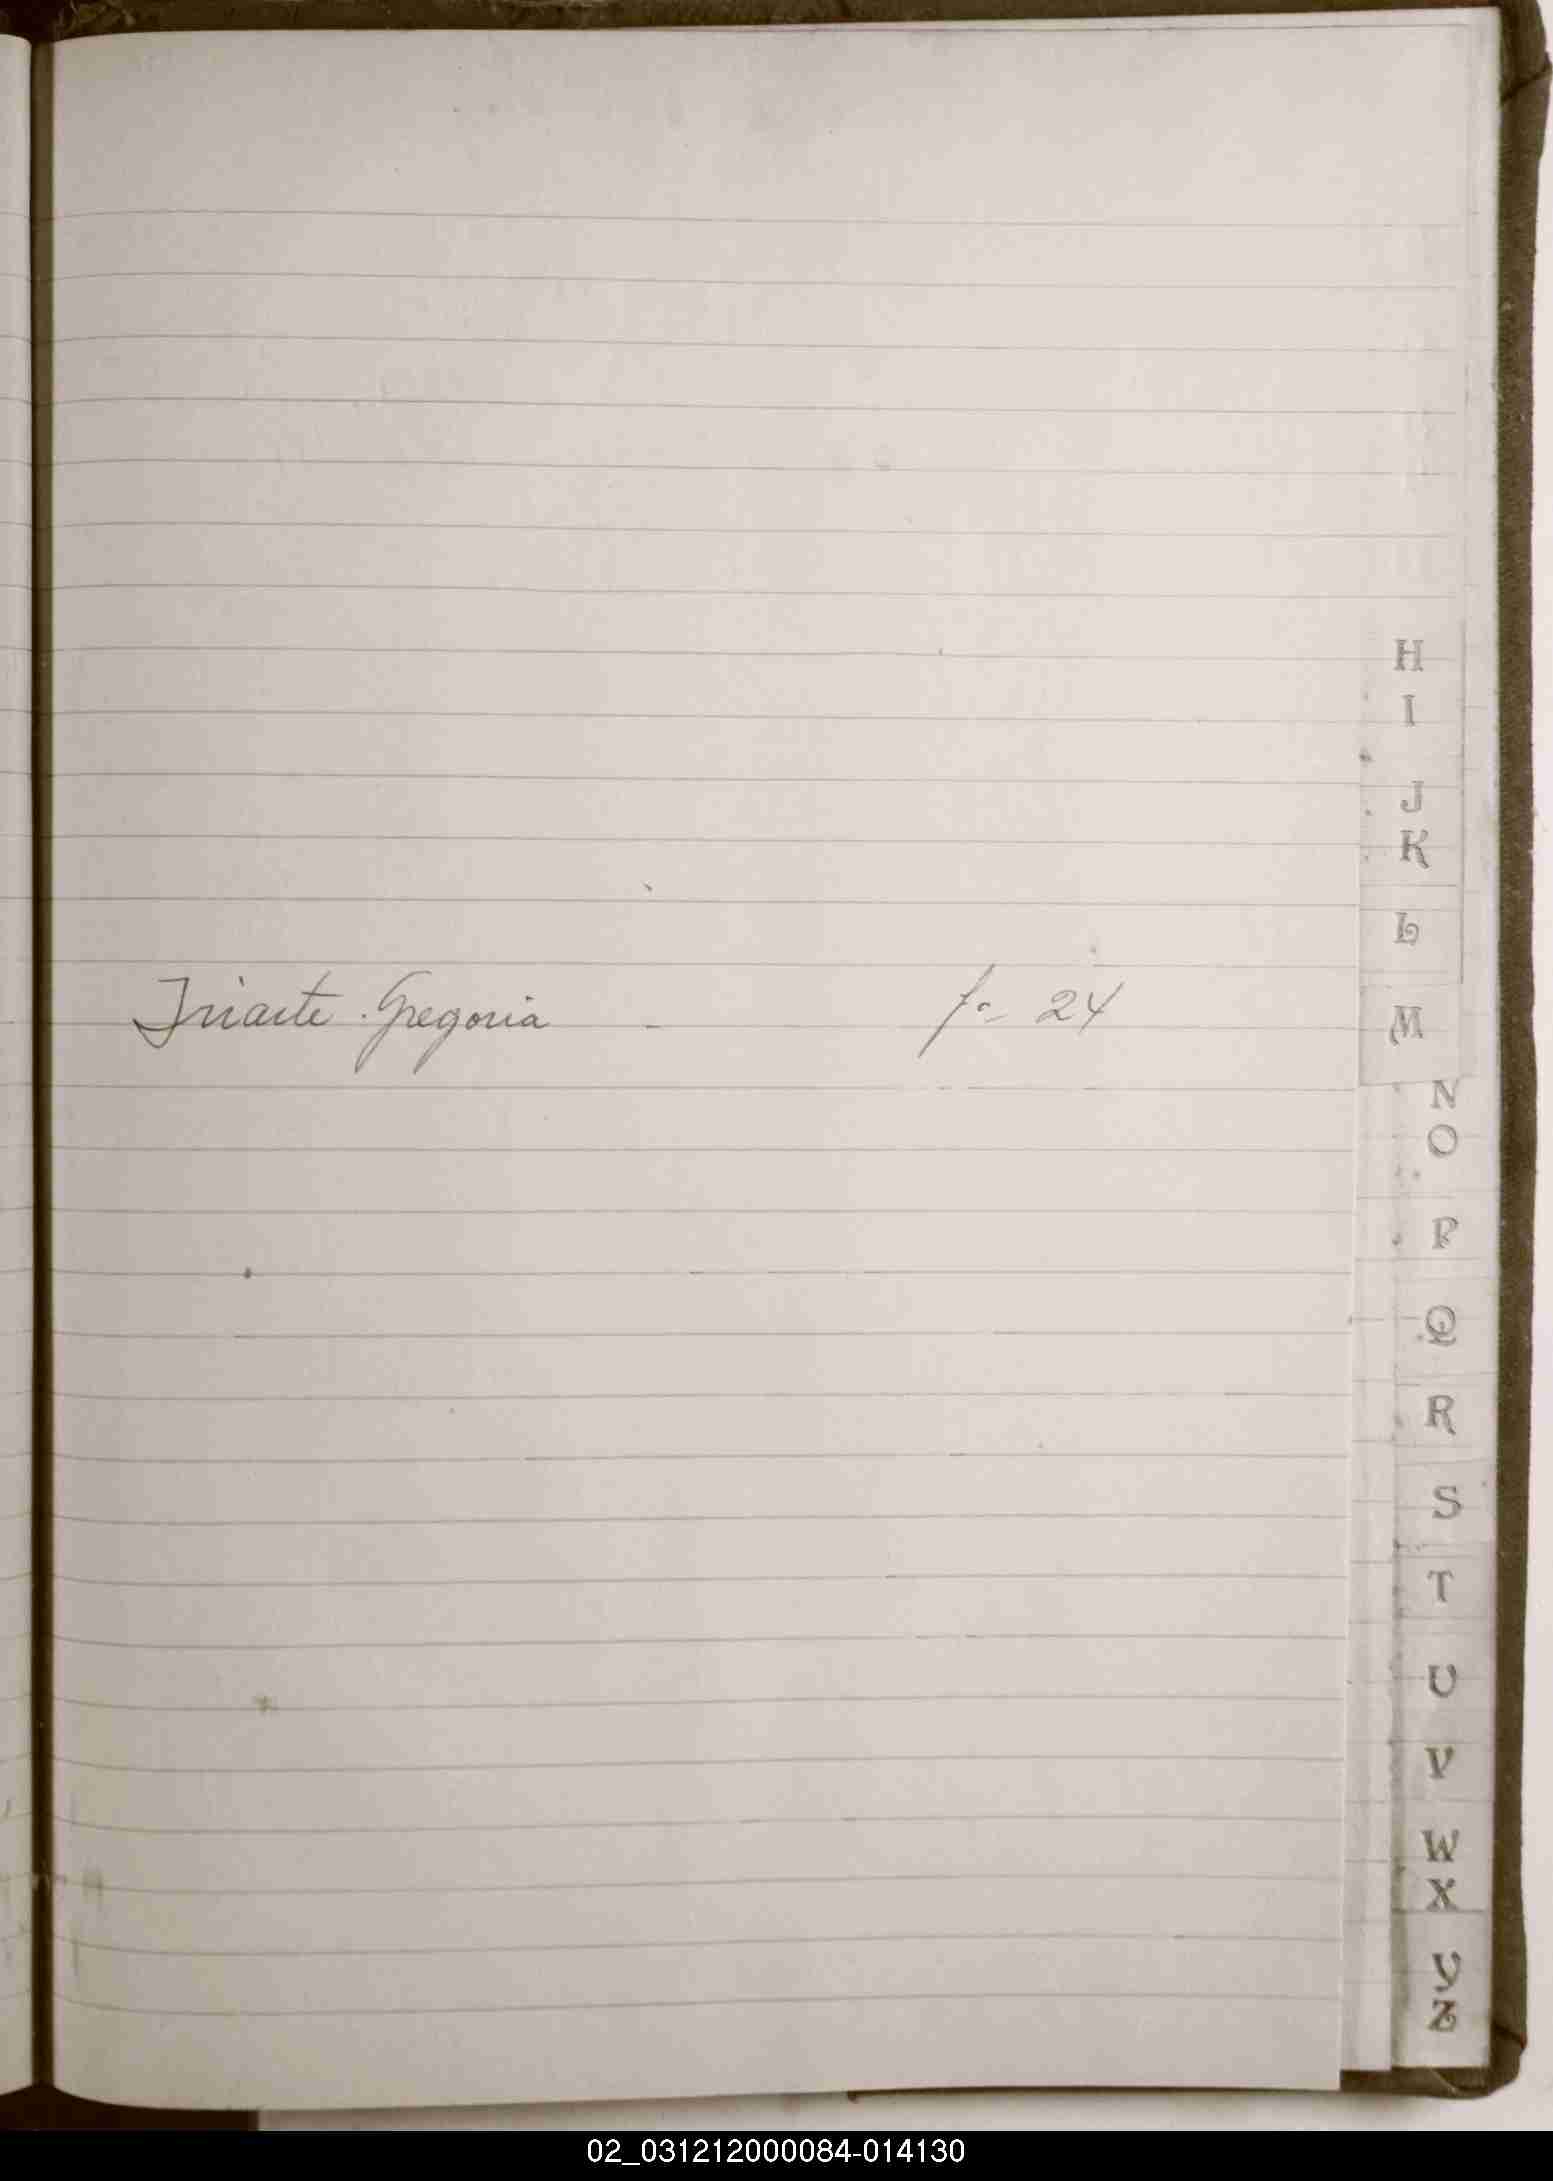 Iriarte Gregoria - fº 24
H
I
J
K
L
M
N
O
P
Q
R
S
T
U
V
W
X
Y
Z
02_031212000084-014130